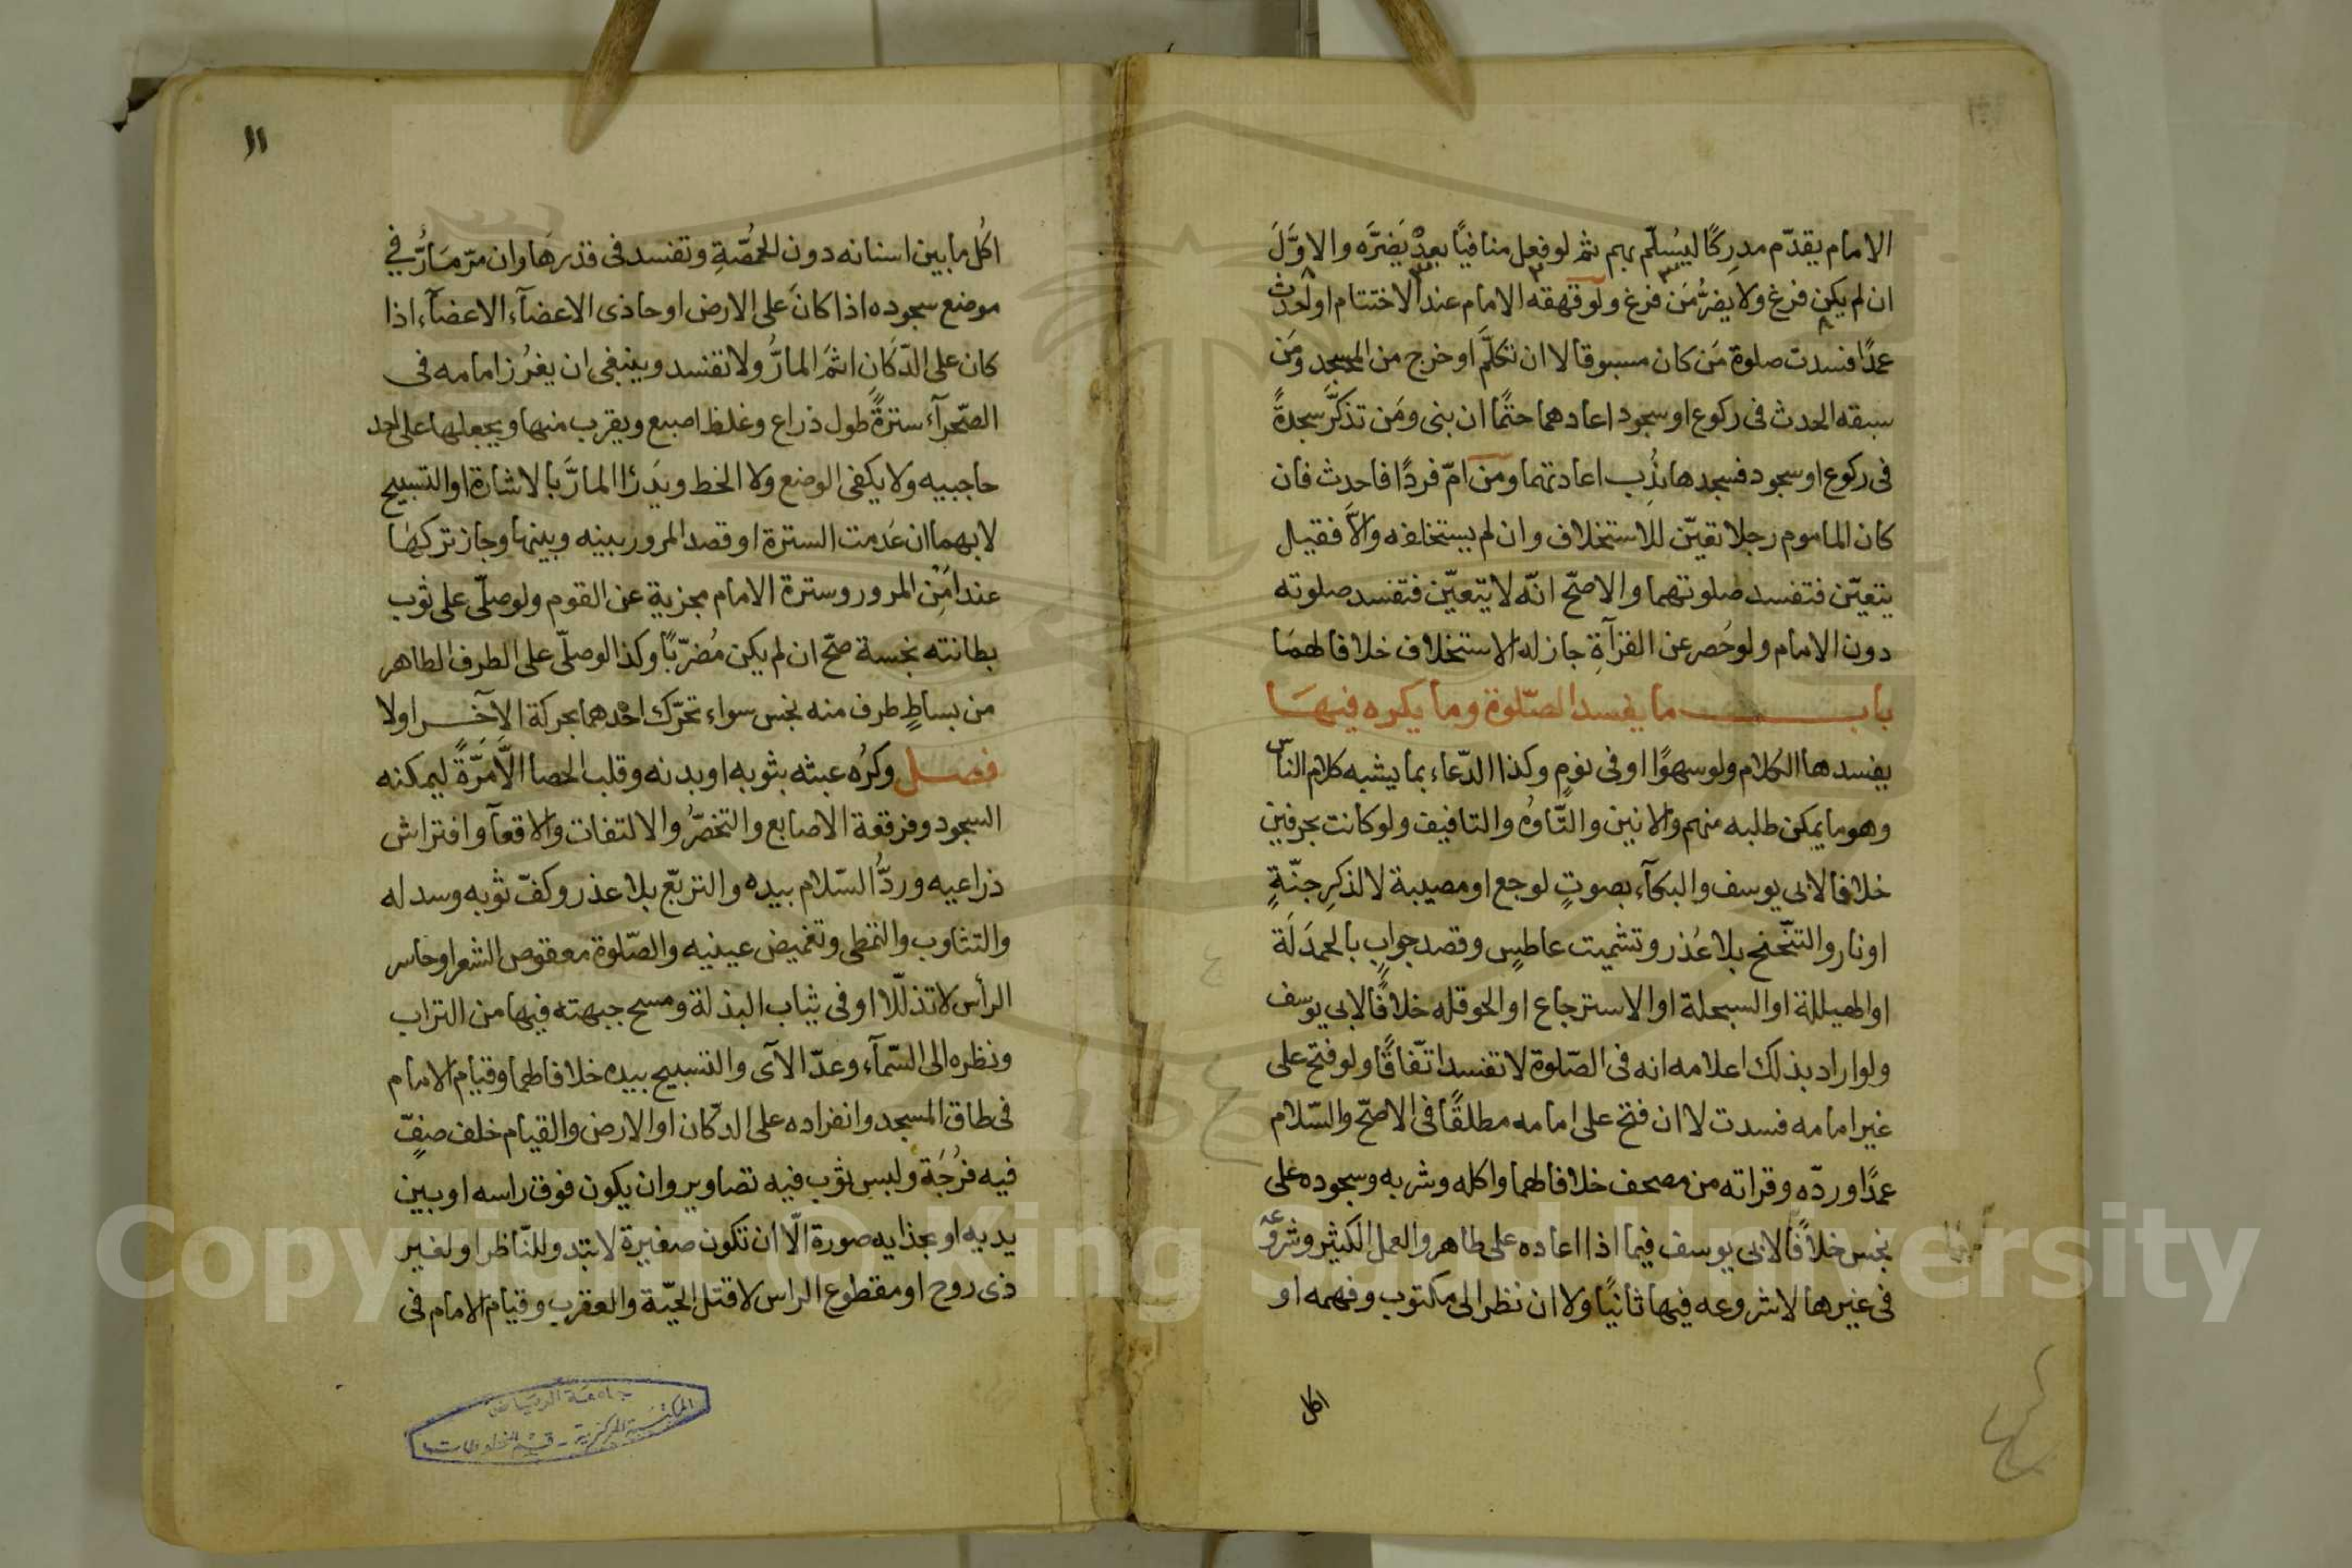 الامام يقدّم مدرِكًا ليُسلّم بهم ثم لو فعل منافيًا بعدْ يَضرَّه والاوَّلَ
ان لم يكن فرغ ولا يضرُّ مَن فرغ ولو قهقه الامام عند الاختتام او احدث
عمدًا فسدت صلوة مَن كان مسبوقا لا ان تكلَّم او خرج من المسجد ومَن
سبقه الحدث فى ركوع او سجود اعادهما حتمًا ان بنى ومَن تذكَّر سجدةً
فى ركوع او سجود فسجدها نُدِب اعادتهما ومن امّ فردًا فاحدث فان
كان الماموم رجلا تعيّن للاستخلاف وان لم يستخلفه والاَّ فقيل
يتعيّن فتفسد صلوتهما والاصحّ انّه لا يتعيّن فتفسد صلوته
دون الامام ولو حُصر عن القرآةِ جاز له الاستخلاف خلافا لهمَا
باب ما يفسد الصّلوة وما يكره فيهَا
يفسدها الكلام ولو سهوًا او فى نومٍ وكذا الدّعاء بما يشبه كلام الناس
وهو ما يمكن طلبه منهم والانين والتَّاوُه والتافيف ولو كانت بحرفين
خلافا لابى يوسف والبكآء بصوتٍ لوجع او مصيبة لا لذكرِ جنّةٍ
او نار والتنّحنح بلا عُذر وتشميت عاطسٍ وقصد جوابٍ بالحمدَلَة
او الهيللة او السبحلة او الاسترجاع او الحوقله خلافًا لابى يوسف
ولو اراد بذلك اعلامه انه فى الصّلوة لا تفسد اتّفاقًا ولو فتح على
غير امامه فسدت لا ان فتح على امامه مطلقًا فى الاصحّ والسّلام
عمدًا وردّه وقراته من مصحف خلافا لهما واكله وشربه وسجوده على
نجس خلافًا لابى يوسف فيما اذا اعاده على طاهر والعمل الكثير وشروعه
فى غيرها لا شروعه فيها ثانيًا ولا ان نظر الى مكتوب وفهمه او
اكل
١١
اكُل ما بين اسنانه دون الحمُّصَةِ وتفسد فى قدرهَا وان مرّ مَارٌّ في
موضع سجوده اذا كانَ على الارض او حاذى الاعضآء الاعضآء اذا
كان على الدّكان اثمَ المارُّ ولا تفسد وينبغى ان يغرُز امامه فى
الصّحرآء سترةً طول ذراع وغلظ اصبع ويقرب منها ويجعلها على احد
حاجبيه ولا يكفى الوضع ولا الخط ويَدَرُا المارَّ بالاشارة او التسبيح
لا بهما ان عُدمت السترة او قصد المرور بينه وبينها وجاز تركهَا
عند امَنِ المرور وسترة الامام مجزية عن القوم ولو صلّى على ثوب
بطانته نجسة صحّ ان لم يكن مُضرّبًا وكذا لو صلّى على الطرف الطاهر
من بساطٍ طرف منه نجس سواء تحرّك احْدهما بحركة الآخر اولا
فصل وكرُه عبثه بثوبه او بدنه وقلب الحصا الاَّ مَرَّةً ليمكنه
السجود وفرقعة الاصابع والتخصُّر والالتفات والاقعآ وافتراش
ذراعيه وردُّ السّلام بيده والتربّع بلا عذر وكفّ ثوبه وسدله
والتثاوب والتمطى وتغميض عينيه والصّلوة معقوص الشعر او حاسر
الرأس لا تذلّلا او فى ثياب البذلة ومسح جبهته فيها من التراب
ونظره الى السّمآء وعدّ الآى والتسبيح بيده خلافا لهما وقيام الامام
فى طاق المسجد وانفراده على الدكّان او الارض والقيام خلف صفٍّ
فيه فرُجَة ولبس ثوب فيه تصاوير وان يكون فوق راسه او بين
يديه او بحذايه صورة الّا ان تكون صغيرة لا تبدو للنّاظر او لغير
ذى روح او مقطوع الراس لا قتل الحيّة والعقرب وقيام الامام فى
جامعة الرياض
المكتبة المركزية - قسم المخطوطات
Copyright © King Saud University